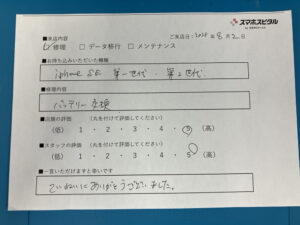 スマホスピタル
■来店内容
ご来店日：2024年8月2日
☑修理 □データ移行 □メンテナンス
■お持ち込みいただいた機種
iphone SE 第一世代 第2世代
■修理内容
バッテリー交換
■店舗の評価 (丸を付けて評価してください)
(低) 1 ・ 2 ・ 3 ・ 4 ・ 5 (高)
■スタッフの評価 (丸を付けて評価してください)
(低) 1 ・ 2 ・ 3 ・ 4 ・ 5 (高)
■一言いただけますと幸いです
ていねいにありがとうございました。